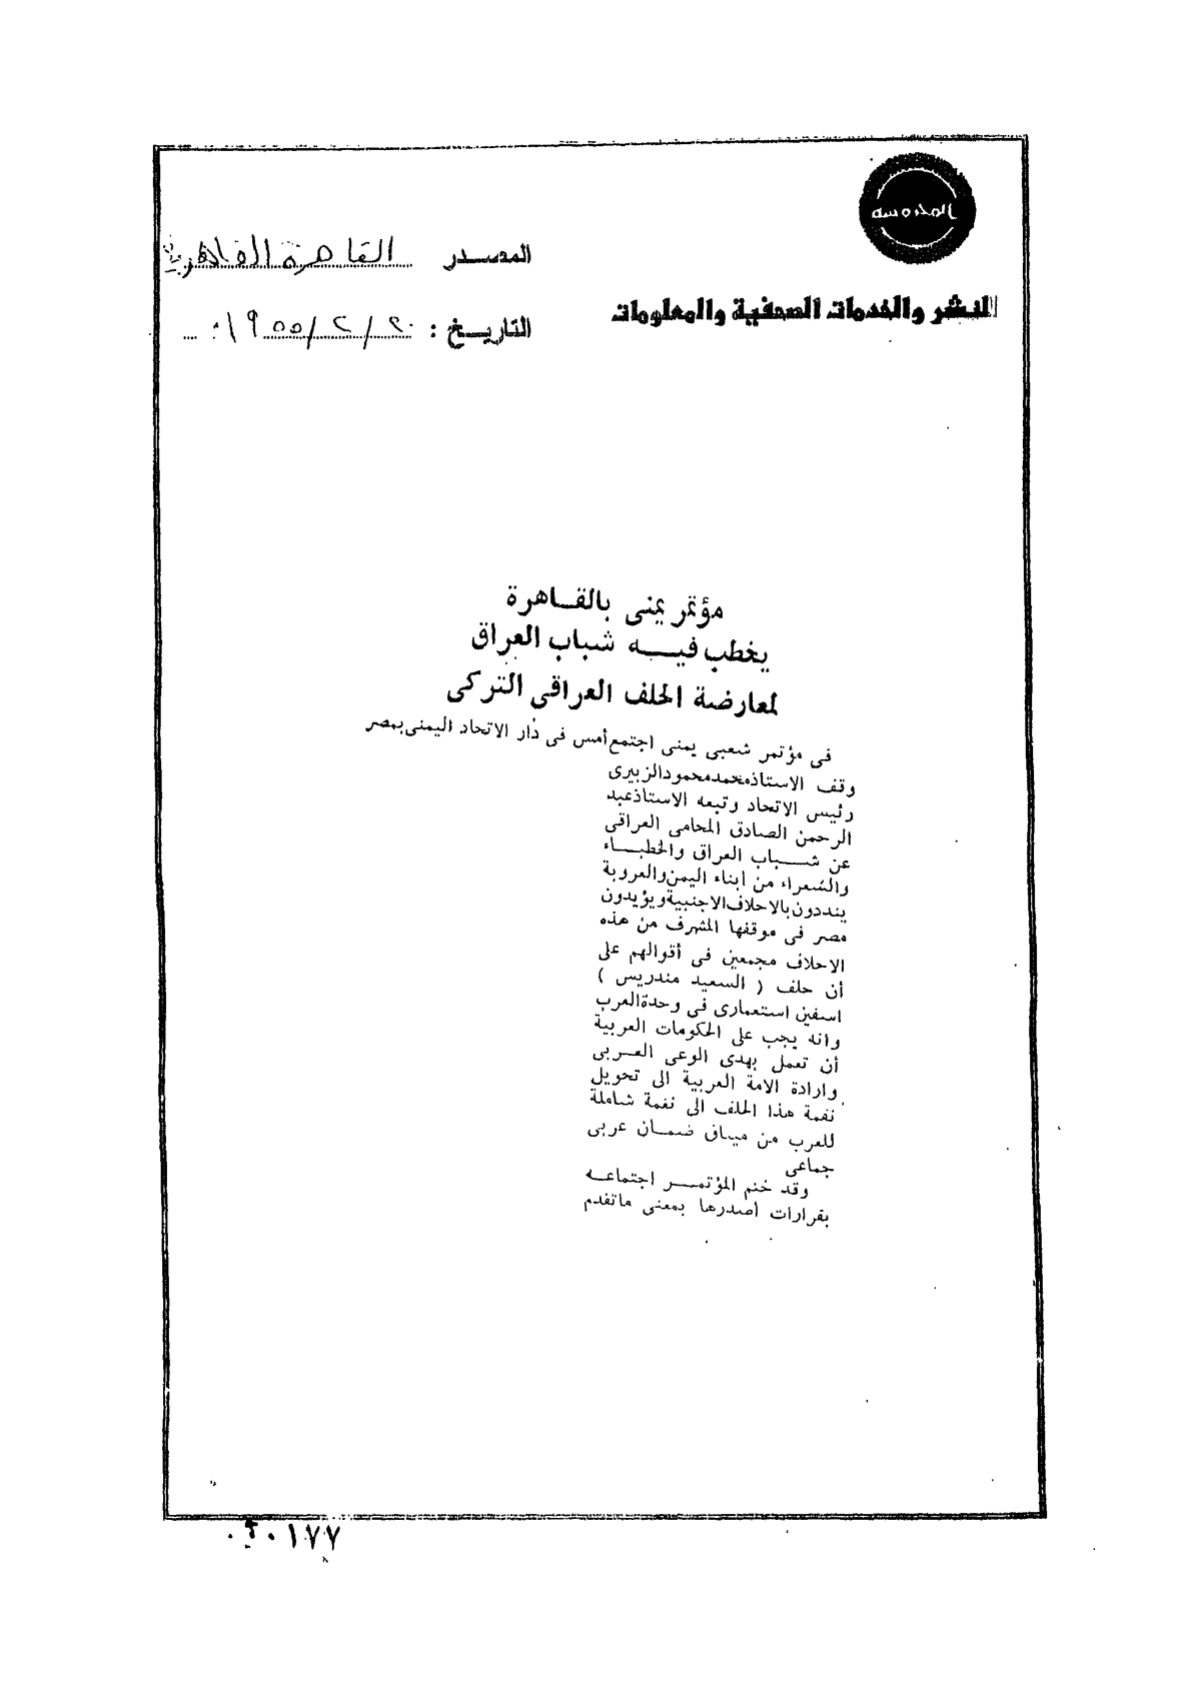 المحروسة
للنشر والخدمات الصحفية والمعلومات
المصدر القاهرة القاهرية
التاريخ : ٢٠/٢/١٩٥٥
مؤتمر يمنى بالقاهرة
يخطب فيه شباب العراق
لمعارضة الحلف العراقى التركى
فى مؤتمر شعبى يمنى اجتمع أمس فى دار الاتحاد اليمنى بمصر
وقف الاستاذ محمد محمود الزبيرى
رئيس الاتحاد وتبعه الاستاذ عبد
الرحمن الصادق المحامى العراقى
عن شباب العراق والخطباء
والشعراء من أبناء اليمن والعروبة
ينددون بالاحلاف الاجنبية ويؤيدون
مصر فى موقفها المشرف من هذه
الاحلاف مجمعين فى أقوالهم على
أن حلف ( السعيد مندريس )
اسفين استعمارى فى وحدة العرب
وانه يجب على الحكومات العربية
أن تعمل بهدى الوعى العربى
وارادة الامة العربية الى تحويل
نغمة هذا الحلف الى نغمة شاملة
للعرب من ميثاق ضمان عربى
جماعى
وقد ختم المؤتمر اجتماعه
بقرارات أصدرها بمعنى ماتقدم